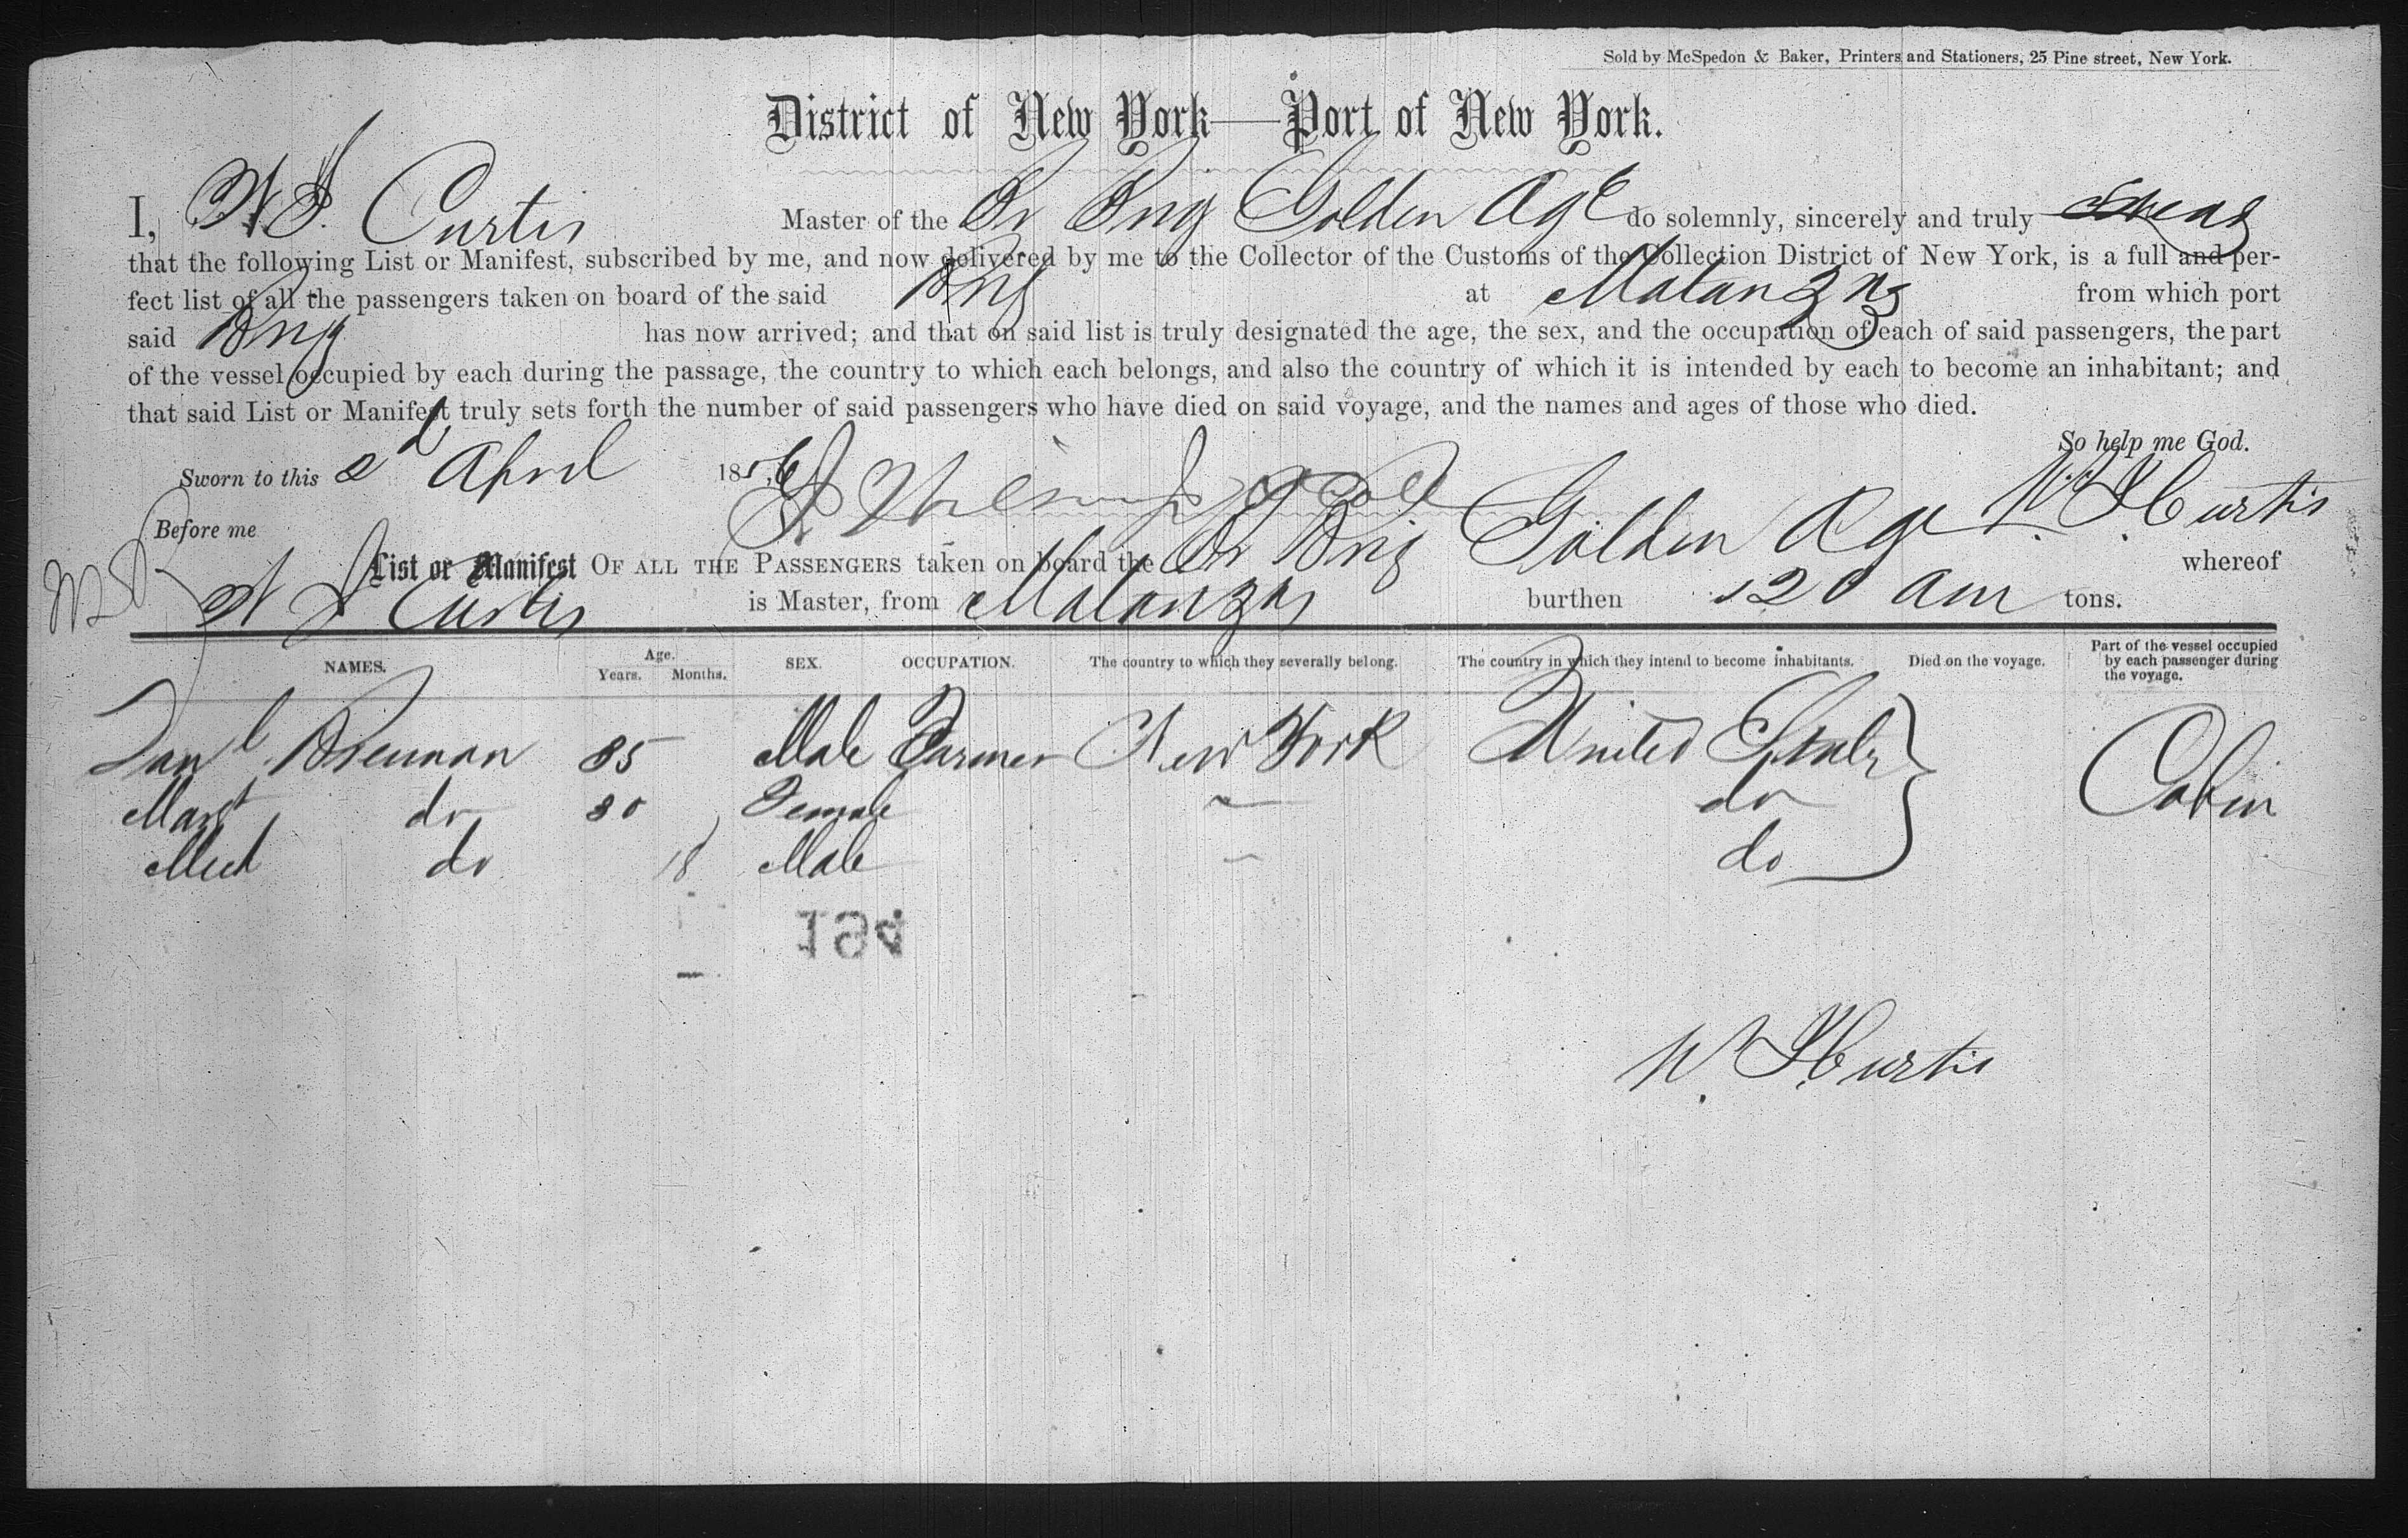 Sold by McSpedon & Baker, Printers and Stationers, 25 Pine street, New York.
District of New York—Port of New York.
I, W J. Curtis Master of the Br Brig Golden Age do solemnly, sincerely and truly swear
that the following List or Manifest, subscribed by me, and now delivered by me to the Collector of the Customs of the Collection District of New York, is a full and per-
fect list of all the passengers taken on board of the said Brig at Matanzas from which port
said Brig has now arrived; and that on said list is truly designated the age, the sex, and the occupation of each of said passengers, the part
of the vessel occupied by each during the passage, the country to which each belongs, and also the country of which it is intended by each to become an inhabitant; and
that said List or Manifest truly sets forth the number of said passengers who have died on said voyage, and the names and ages of those who died.
So help me God.
Sworn to this 2d April 1856
W. J. Curtis
Before me
List or Manifest OF ALL THE PASSENGERS taken on board the Br Brig Golden Age whereof
W J Curtis is Master, from Matanzas burthen 120 am tons.
NAMES. Age. Years. Months. SEX. OCCUPATION. The country to which they severally belong. The country in which they intend to become inhabitants. Died on the voyage. Part of the vessel occupied by each passenger during the voyage.
Danl Brennan 35 Male Farmer New York United States Cabin
Margt do 30 Female do
do 18 Male do
194
W. J. Curtis